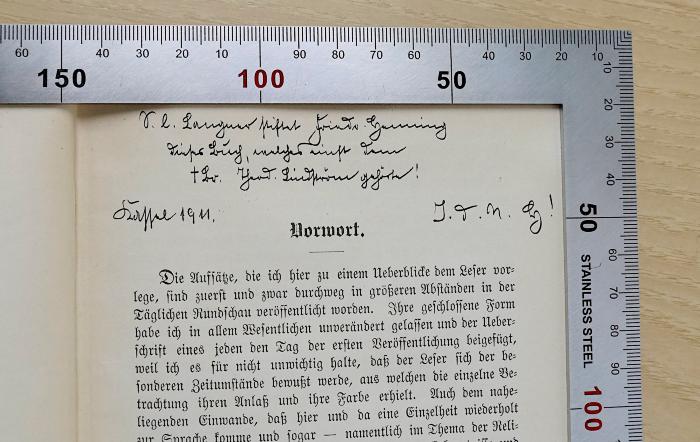 60 150 90 80 70 100 90 80 70 60 50 40 30 20 10
10 20 30 40 50 60 70 80 90 100
STAINLESS STEEL
S. l. Langner stiftet Friedr. Henning
dieses Buch, welches einst dem
† Br. Theod. Lindström gehörte!
Kassel 1911.
J. d. n. Hz!
Vorwort.
Die Aufsätze, die ich hier zu einem Ueberblicke dem Leser vor-
lege, sind zuerst und zwar durchweg in größeren Abständen in der
Täglichen Rundschau veröffentlicht worden. Ihre geschlossene Form
habe ich in allem Wesentlichen unverändert gelassen und der Ueber-
schrift eines jeden den Tag der ersten Veröffentlichung beigefügt,
weil ich es für nicht unwichtig halte, daß der Leser sich der be-
sonderen Zeitumstände bewußt werde, aus welchen die einzelne Be-
trachtung ihren Anlaß und ihre Farbe erhielt. Auch dem nahe-
liegenden Einwande, daß hier und da eine Einzelheit wiederholt
zur Sprache komme und sogar — namentlich im Thema der Reli-